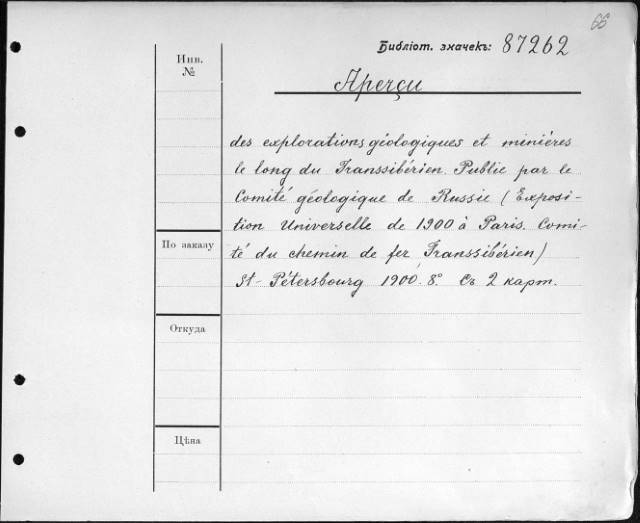 66
Библіот. значекъ: 87262
Инв.
№
Aperçu
des explorations géologiques et minières
le long du Transsibérien. Publié par le
Comité géologique de Russie (Exposi-
tion Universelle de 1900 à Paris. Comi-
té du chemin de fer Transsibérien)
St-Pétersbourg 1900. 8°. Съ 2 карт.
По заказу
Откуда
Цѣна